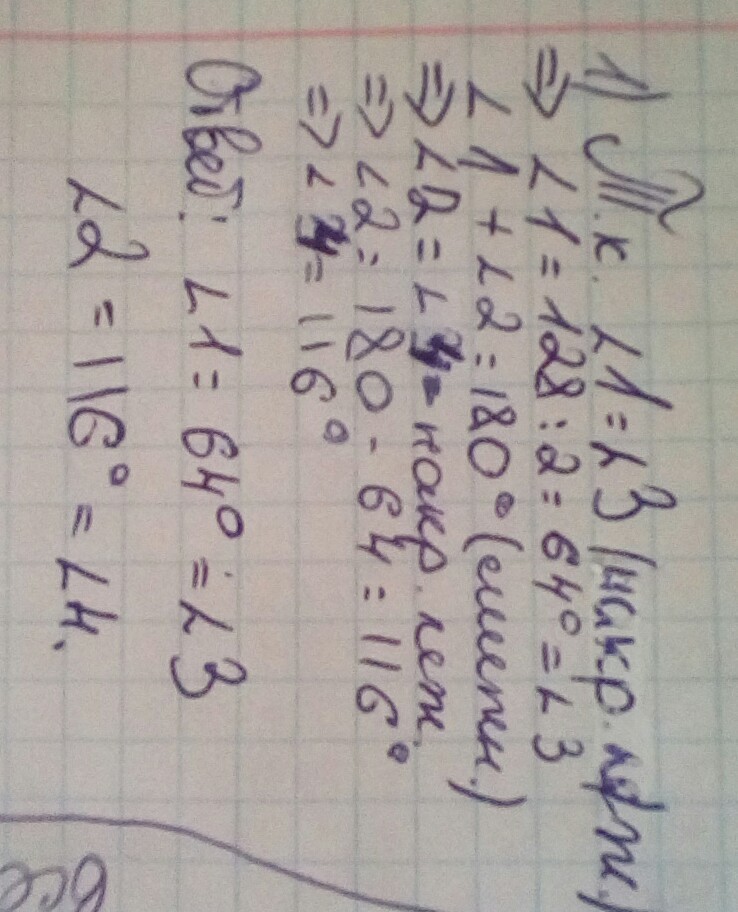 1) Т.к. ∠1 = ∠3 (накр. леж.)
=> ∠1 = 128 : 2 = 64° = ∠3
∠1 + ∠2 = 180° (смежн.)
=> ∠2 = ∠4 - накр. леж.
=> ∠2 = 180 - 64 = 116°
=> ∠4 = 116°
Ответ: ∠1 = 64° = ∠3
∠2 = 116° = ∠4.
все